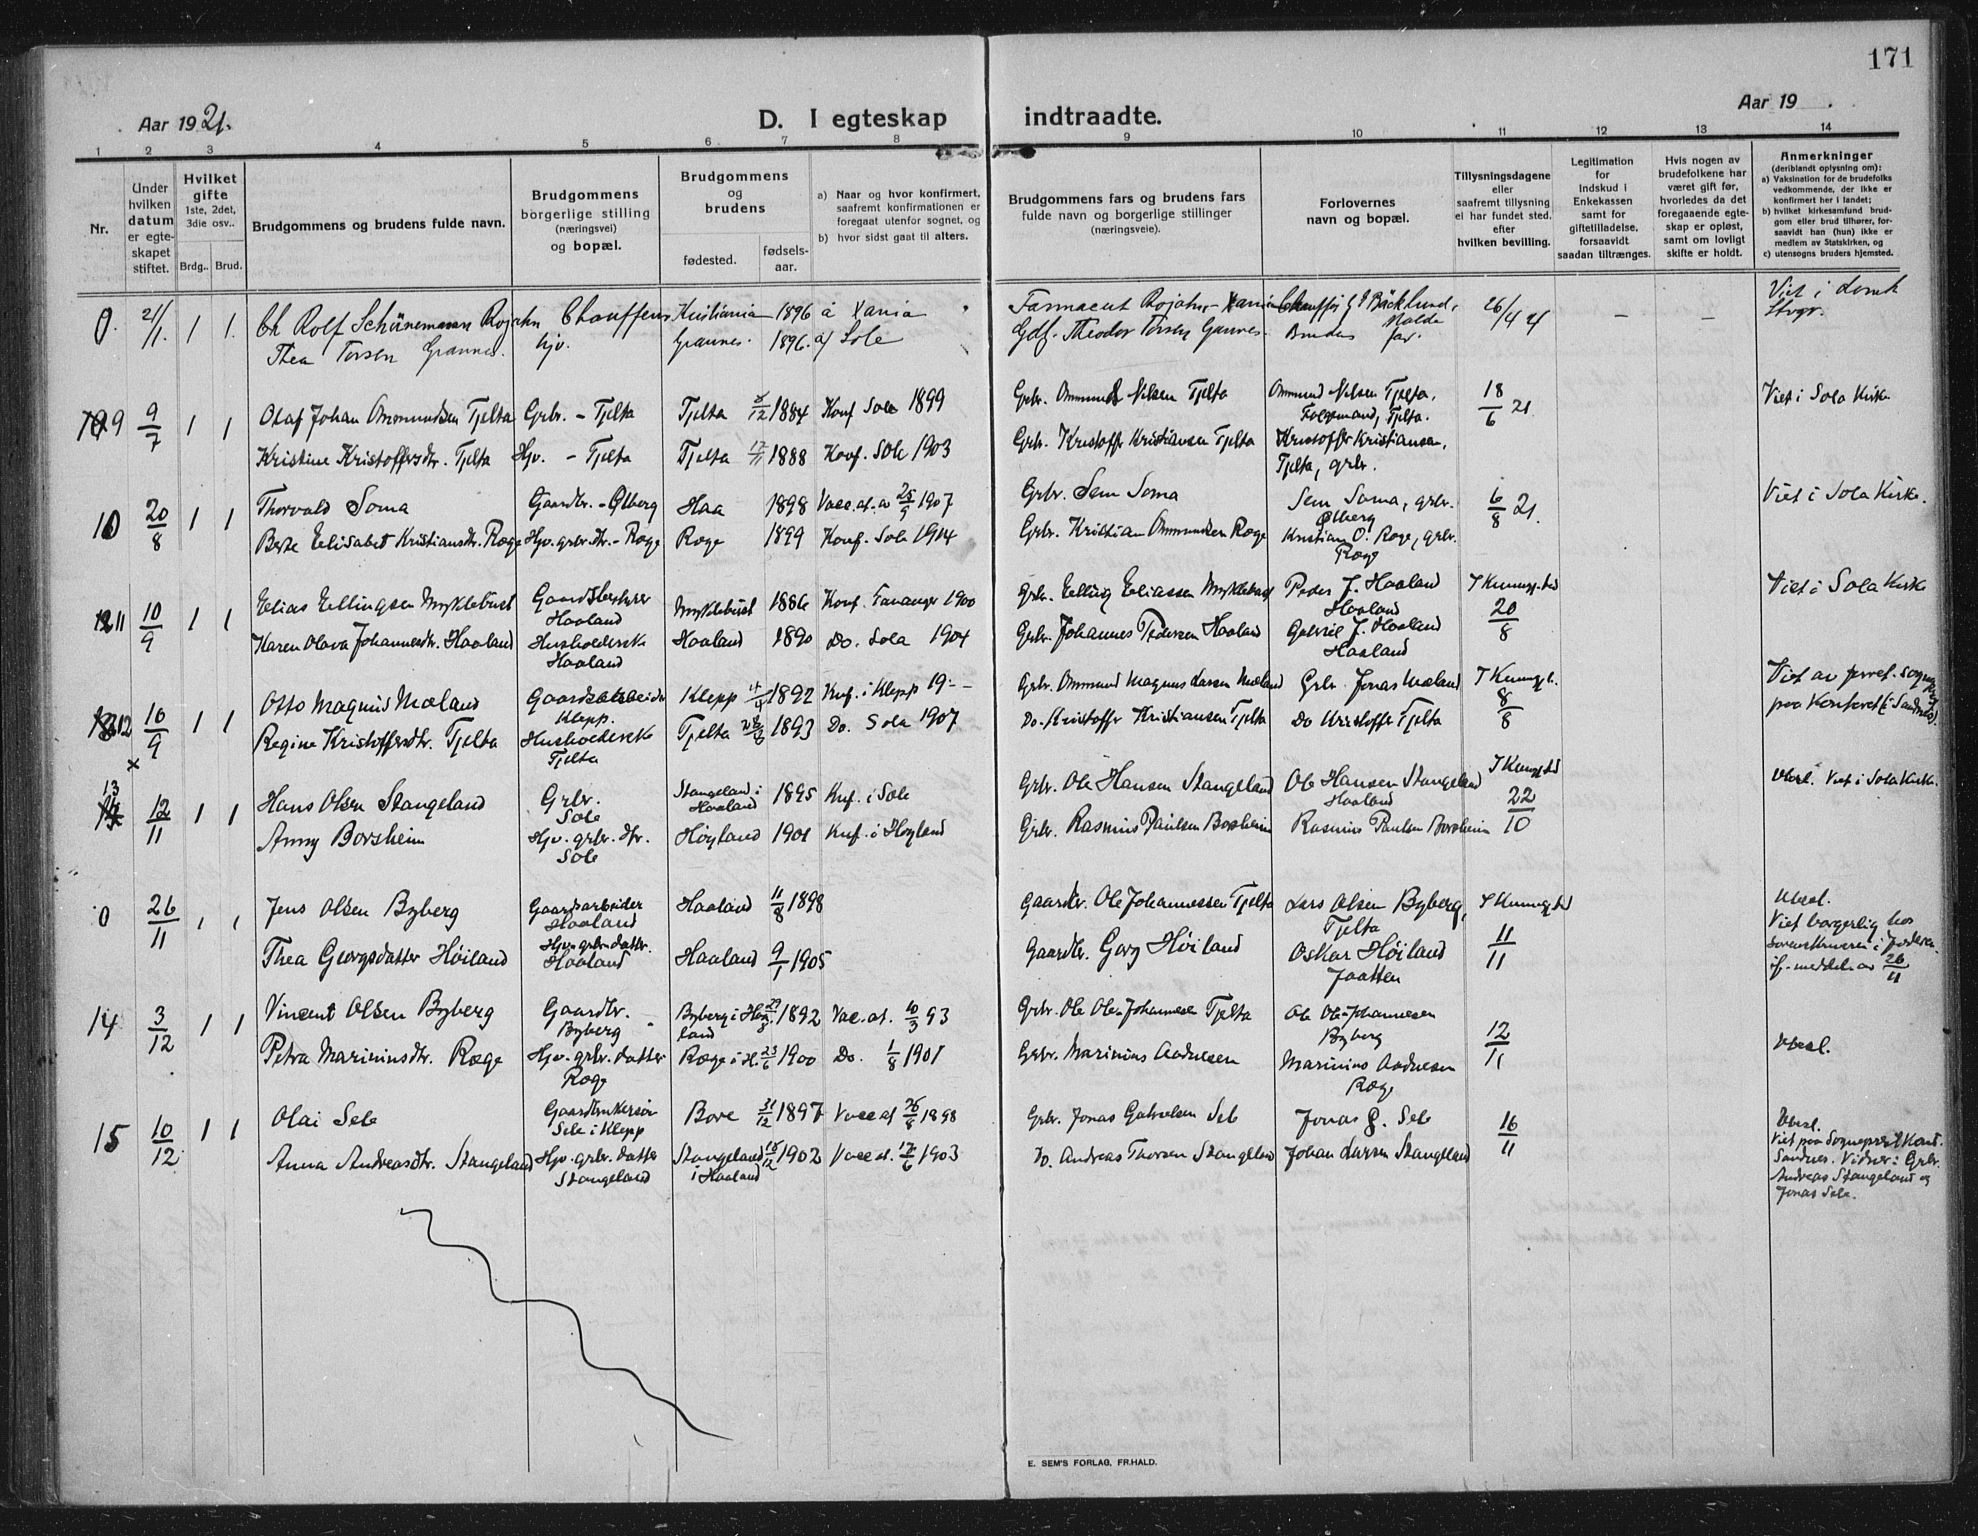 171
Aar 1921.
D. I egteskap indtraadte.
Aar 19 .
1 2 3 4 5 6 7 8 9 10 11 12 13 14
Nr.
Under hvilken datum er egteskapet stiftet.
Hvilket gifte 1ste, 2det, 3die osv..
Brdg.. Brud.
Brudgommens og brudens fulde navn.
Brudgommens borgerlige stilling (næringsvei) og bopæl.
Brudgommens og brudens
fødested.
fødsels-aar.
a) Naar og hvor konfirmert, saafremt konfirmationen er foregaat utenfor sognet, og
b) hvor sidst gaat til alters.
Brudgommens fars og brudens fars fulde navn og borgerlige stillinger (næringsveie).
Forlovernes navn og bopæl.
Tillysningsdagene eller saafremt tillysning ei har fundet sted. efter hvilken bevilling.
Legitimation for Indskud i Enkekassen samt for giftetilladelse, forsaavidt saadan tiltrænges.
Hvis nogen av brudefolkene har været gift før, hvorledes da det foregaaende egteskap er opløst, samt om lovligt skifte er holdt.
Anmerkninger (deriblandt oplysning om):
a) Vaksination for de brudefolks vedkommende, der ikke er konfirmert her i landet;
b) hvilket kirkesamfund brudgom eller brud tilhører, forsaavidt han (hun) ikke er medlem av Statskirken, og
c) utensogns bruders hjemsted.
0. 21/1. 1 1. Ch Rolf Schünemann Rojahn Chauffeur Kristiania 1896 a Xania Farmaceut Rojahn - Xania Bäcklund, 26/4 21 – – Viet i
Thea Torsen Grannes. hjv. Grannes. 1896. a) Sole Gdf. Theodor Torsen Grannes. Brudens far.
9 9/7 1 1 Olaf Johan Ommundsen Tjelta Grbr. - Tjelta Tjelta 1884 Konf Sola 1899 Grbr. Ommund Nilsen Tjelta Ommund Nilsen Tjelta, Tjelta. 18/6 21. Viet i Sola Kirke
Kristine Kristoffersdtr. Tjelta Hjv. - Tjelta Tjelta 17/11 1888 Konf. Sola 1903 Grbr. Kristoffer Kristiansen Tjelta Kristoffer Kristiansen, Tjelta, grbr.
10 20/8 1 1 Thorvald Soma Gaardbr. - Ølberg Haa 1898 Vacc. at. av 25/9 1907 Grbr. Sem Soma Sem Soma, grbr. Ølberg 6/8 21. Viet i Sola Kirke.
Berte Elisabet Kristiansdtr. Røge Hjv. grbr. dtr. - Røge Røge 1899 Konf. Sola 1914 Grbr. Kristian Ommundsen Røge Kristian O. Røge, grbr. Røge
11 10/9 1 1 Elias Ellingsen Myklebust Gaardsbestyrer Haaland Myklebust 1886 Konf. 1900 Grbr. Elling Eliassen Myklebust Peder J. Haaland Haaland 20/8 Viet i Sola Kirke
Karen Olava Johannesdtr. Haaland Haaland Haaland 1890 Do. Sola 1904 Grbr. Johannes Pedersen Haaland Gabriel J. Haaland Haaland
12 10/9 1 1 Otto Magnus Mæland Gaardsarbeider Klepp. Klepp 1892 Knf. i Klepp 19-- Grbr. Ommund Magnus Larsen Mæland Grbr. Jonas Mæland 8/8 Viet av
Regine Kristoffersdtr. Tjelta Tjelta Tjelta 1893 Do. Sola 1907 Do. Kristoffer Kristiansen Tjelta Do Kristoffer Tjelta paa Kontoret i Sandnes.
x
13 12/11 1 1 Hans Olsen Stangeland Grbr. Sole Stangeland i Haaland 1895 Knf. i Sole Grbr. Ole Hansen Stangeland Ole Hansen Stangeland Haaland 22/10 Viet i Sola Kirke.
Anny Borsheim Hjv. grbr. dtr. Sole Høyland 1901 Knf. i Høyland Grbr. Rasmus Paulsen Borsheim Rasmus Paulsen Borsheim
0 26/11 1 1 Jens Olsen Byberg Gaardsarbeider Haaland Haaland 11/8 1898 Gaardbr. Ole Johannessen Tjelta Lars Olsen Byberg, Tjelta 11/11 Viet borgerlig hos Sorenskriveren i Jæderen if. meddel. av 26/11
Thea Georgsdatter Høiland Hjv. grbr. datter. Haaland Haaland 9/1 1905 Gaardbr. Georg Høiland Oskar Høiland Jaatten
14 3/12 1 1 Vincent Olsen Byberg Gaardbr. Byberg Byberg i Haaland 1892 Vac. at. 10/3 93 Grbr. Ole Johannesen Tjelta Byberg 12/11
Petra Mariniusdtr. Røge Hjv. grbr. datter Røge Røge i H. 23/6 1900 Do. 1/8 1901 Grbr. Marinius Andresen Marinius Andresen Røge
15 10/12. 1 1 Olai Sele Gaardbrukersøn Sele i Klepp Bore 31/12 1897 Vacc at 26/8 1898 Grbr. Jonas Gabrielsen Sele Jonas G. Sele 16/11 Viet paa Sogneprest Kont. Sandnes. Vidner: Grbr. Andreas Stangeland og Jonas Sele.
Anna Andreasdtr. Stangeland Hjv. grbr. datter Stangeland Stangeland i Haaland 15/12 1902 Vacc at. 17/6 1903 Do. Andreas Thorsen Stangeland Johan Larsen Stangeland
E. SEM'S FORLAG, FR.HALD.